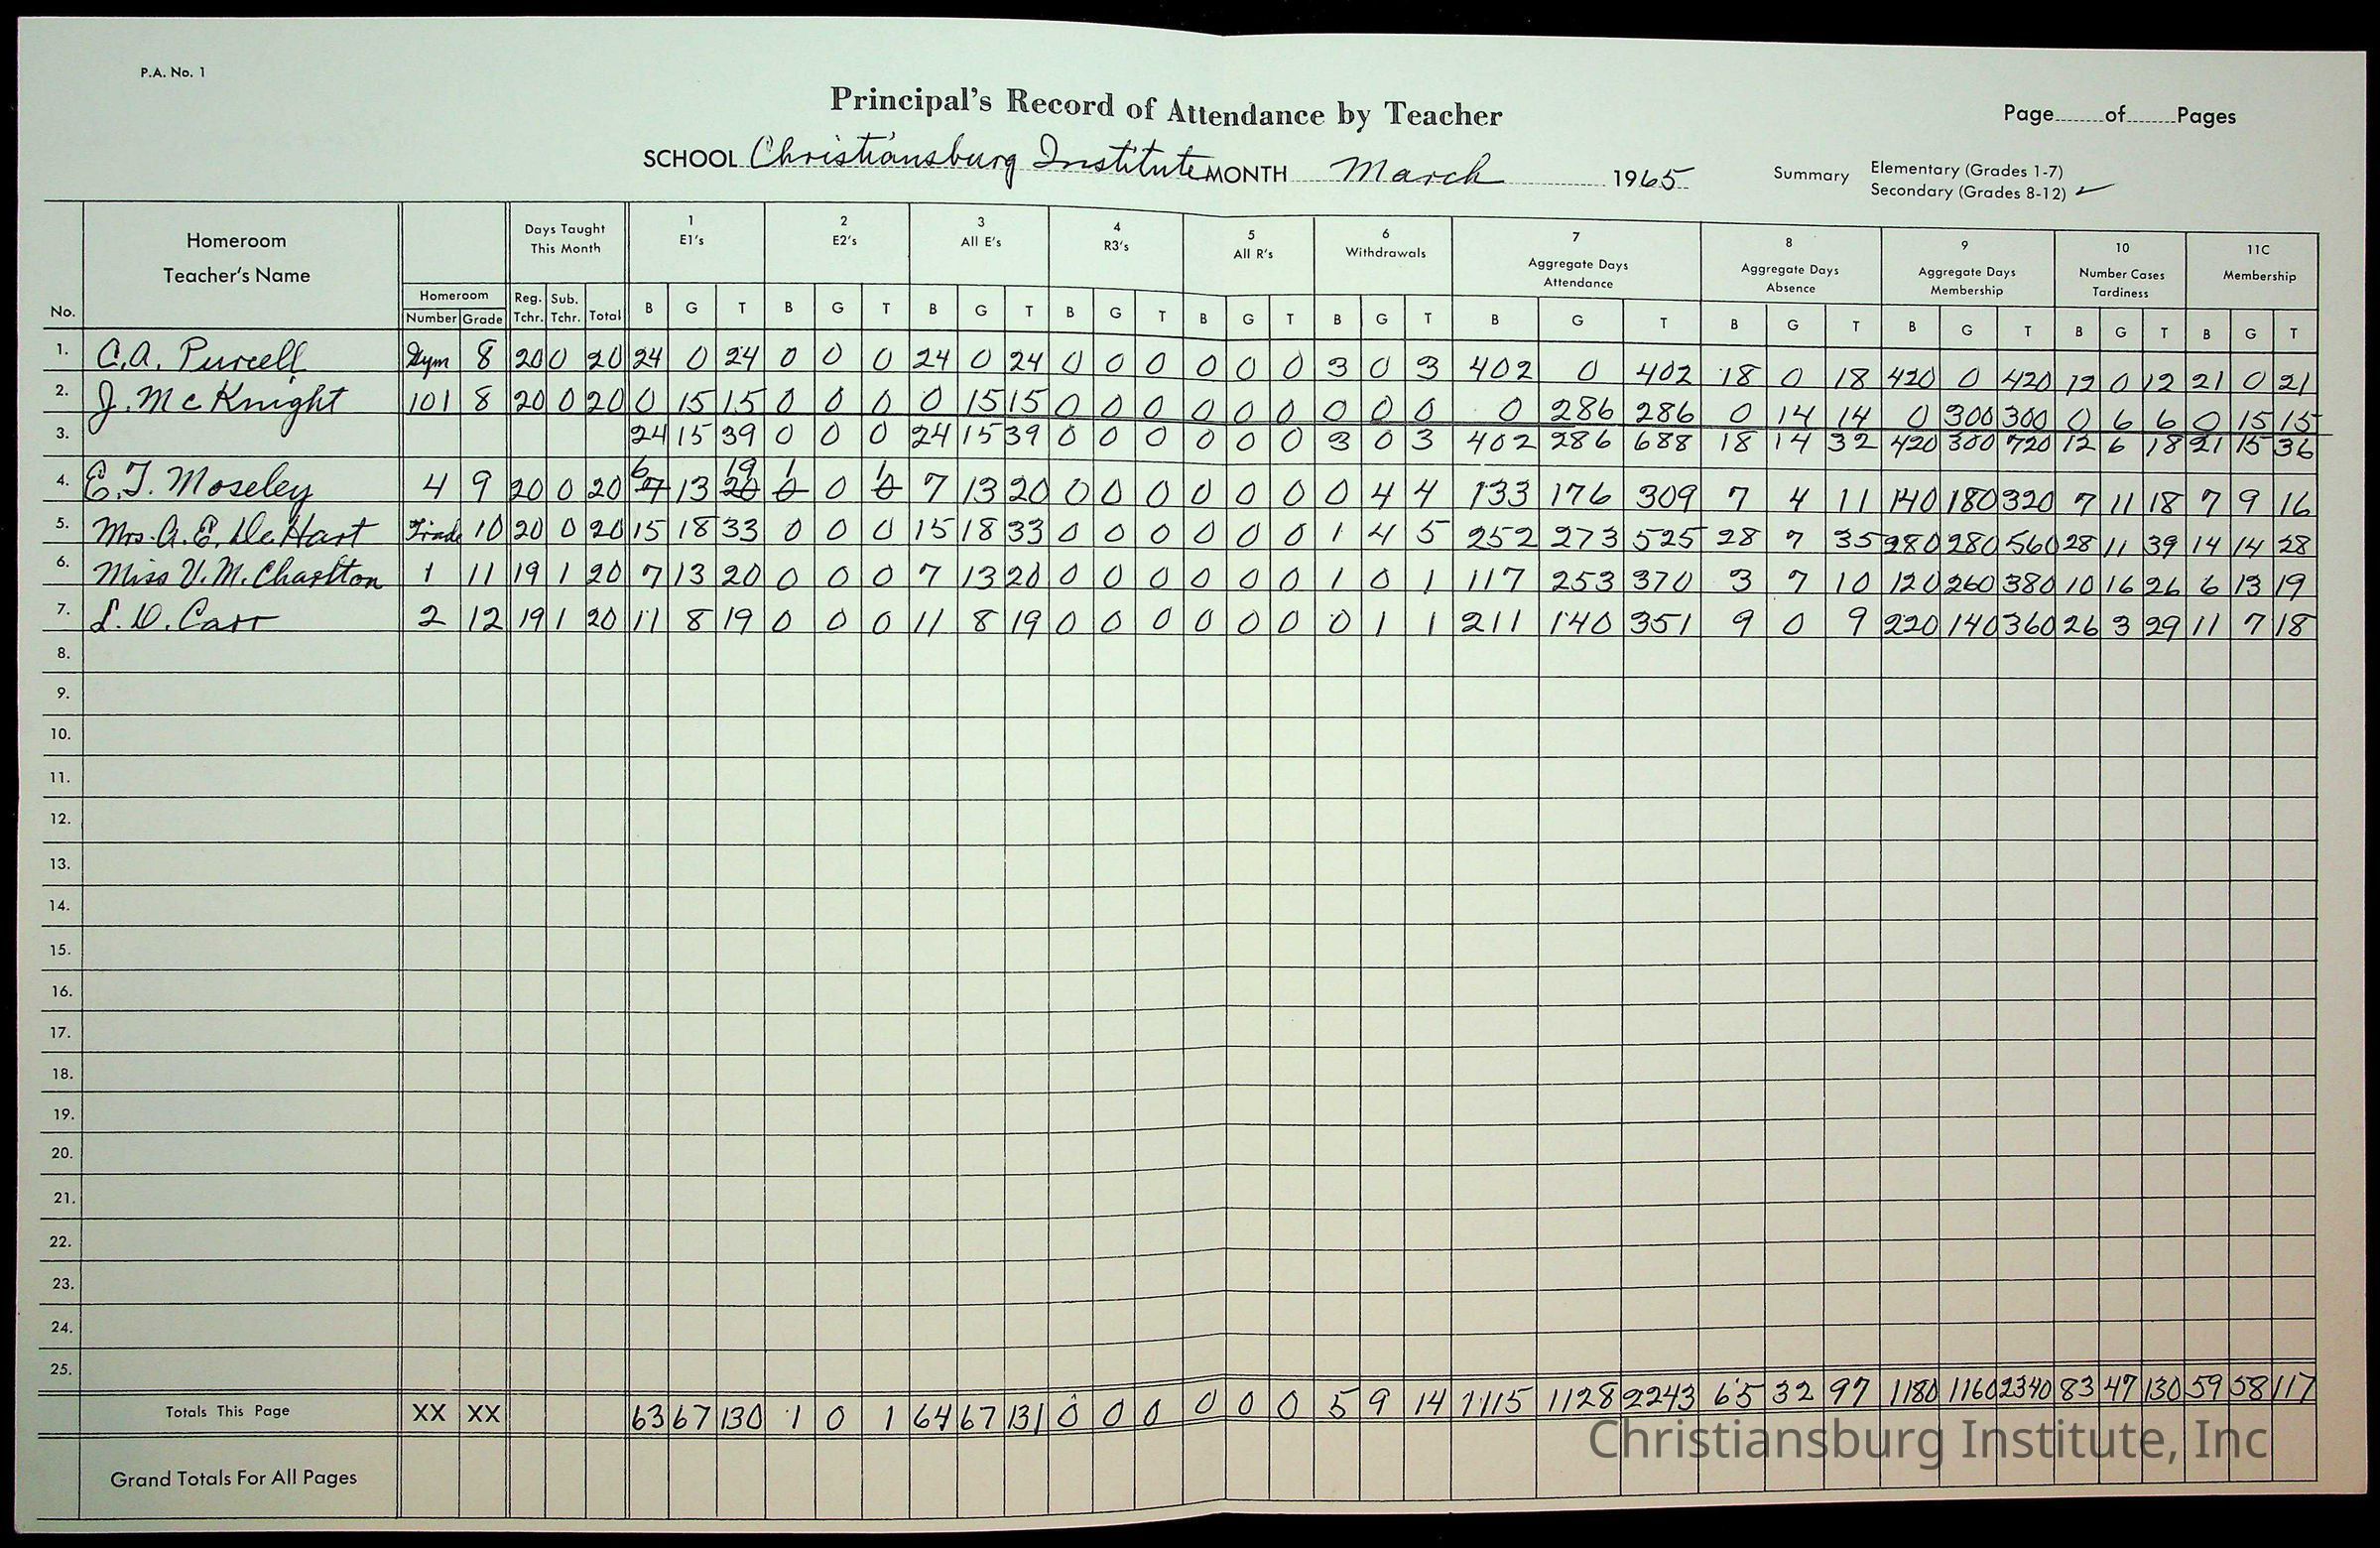 P.A. No. 1
Principal's Record of Attendance by Teacher
Page........of........Pages
SCHOOL Christiansburg Institute MONTH March 1965
Summary Elementary (Grades 1-7)
Secondary (Grades 8-12) ✓
No. Homeroom Teacher's Name Homeroom Number Grade Days Taught This Month Reg. Tchr. Sub. Tchr. Total 1 E1's 2 E2's 3 All E's 4 R3's 5 All R's 6 Withdrawals 7 Aggregate Days Attendance 8 Aggregate Days Absence 9 Aggregate Days Membership 10 Number Cases Tardiness 11C Membership
B G T B G T B G T B G T B G T B G T B G T B G T B G T B G T B G T
1. C.A. Purcell Gym 8 20 0 20 24 0 24 0 0 0 24 0 24 0 0 0 0 0 0 3 0 3 402 0 402 18 0 18 420 0 420 12 0 12 21 0 21
2. J. McKnight 101 8 20 0 20 0 15 15 0 0 0 0 15 15 0 0 0 0 0 0 0 0 0 0 286 286 0 14 14 0 300 300 0 6 6 0 15 15
3. 24 15 39 0 0 0 24 15 39 0 0 0 0 0 0 3 0 3 402 286 688 18 14 32 420 300 720 12 6 18 21 15 36
4. E.T. Moseley 4 9 20 0 20 6 7 13 19 20 1 0 0 1 0 7 13 20 0 0 0 0 0 0 0 4 4 133 176 309 7 4 11 140 180 320 7 11 18 7 9 16
5. Mrs. A.E. DeHart Trade 10 20 0 20 15 18 33 0 0 0 15 18 33 0 0 0 0 0 0 1 4 5 252 273 525 28 7 35 280 280 560 28 11 39 14 14 28
6. Miss V.M. Charlton 1 11 19 1 20 7 13 20 0 0 0 7 13 20 0 0 0 0 0 0 1 0 1 117 253 370 3 7 10 120 260 380 10 16 26 6 13 19
7. L.D. Carr 2 12 19 1 20 11 8 19 0 0 0 11 8 19 0 0 0 0 0 0 0 1 1 211 140 351 9 0 9 220 140 360 26 3 29 11 7 18
8.
9.
10.
11.
12.
13.
14.
15.
16.
17.
18.
19.
20.
21.
22.
23.
24.
25.
Totals This Page XX XX 63 67 130 1 0 1 64 67 131 0 0 0 0 0 0 5 9 14 1115 1128 2243 65 32 97 1180 1160 2340 83 47 130 59 58 117
Grand Totals For All Pages
Christiansburg Institute, Inc